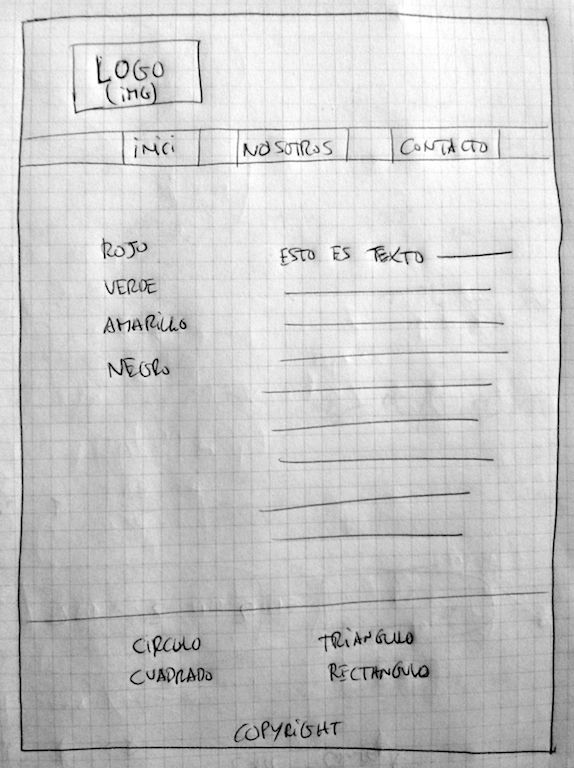 LOGO
(iMG)
iNiCi NOSOTROS CONTACTO
ROJO
VERDE
AMARILLO
NEGRO
ESTO ES TEXTO
CIRCULO TRIANGULO
CUADRADO RECTANGULO
COPYRIGHT